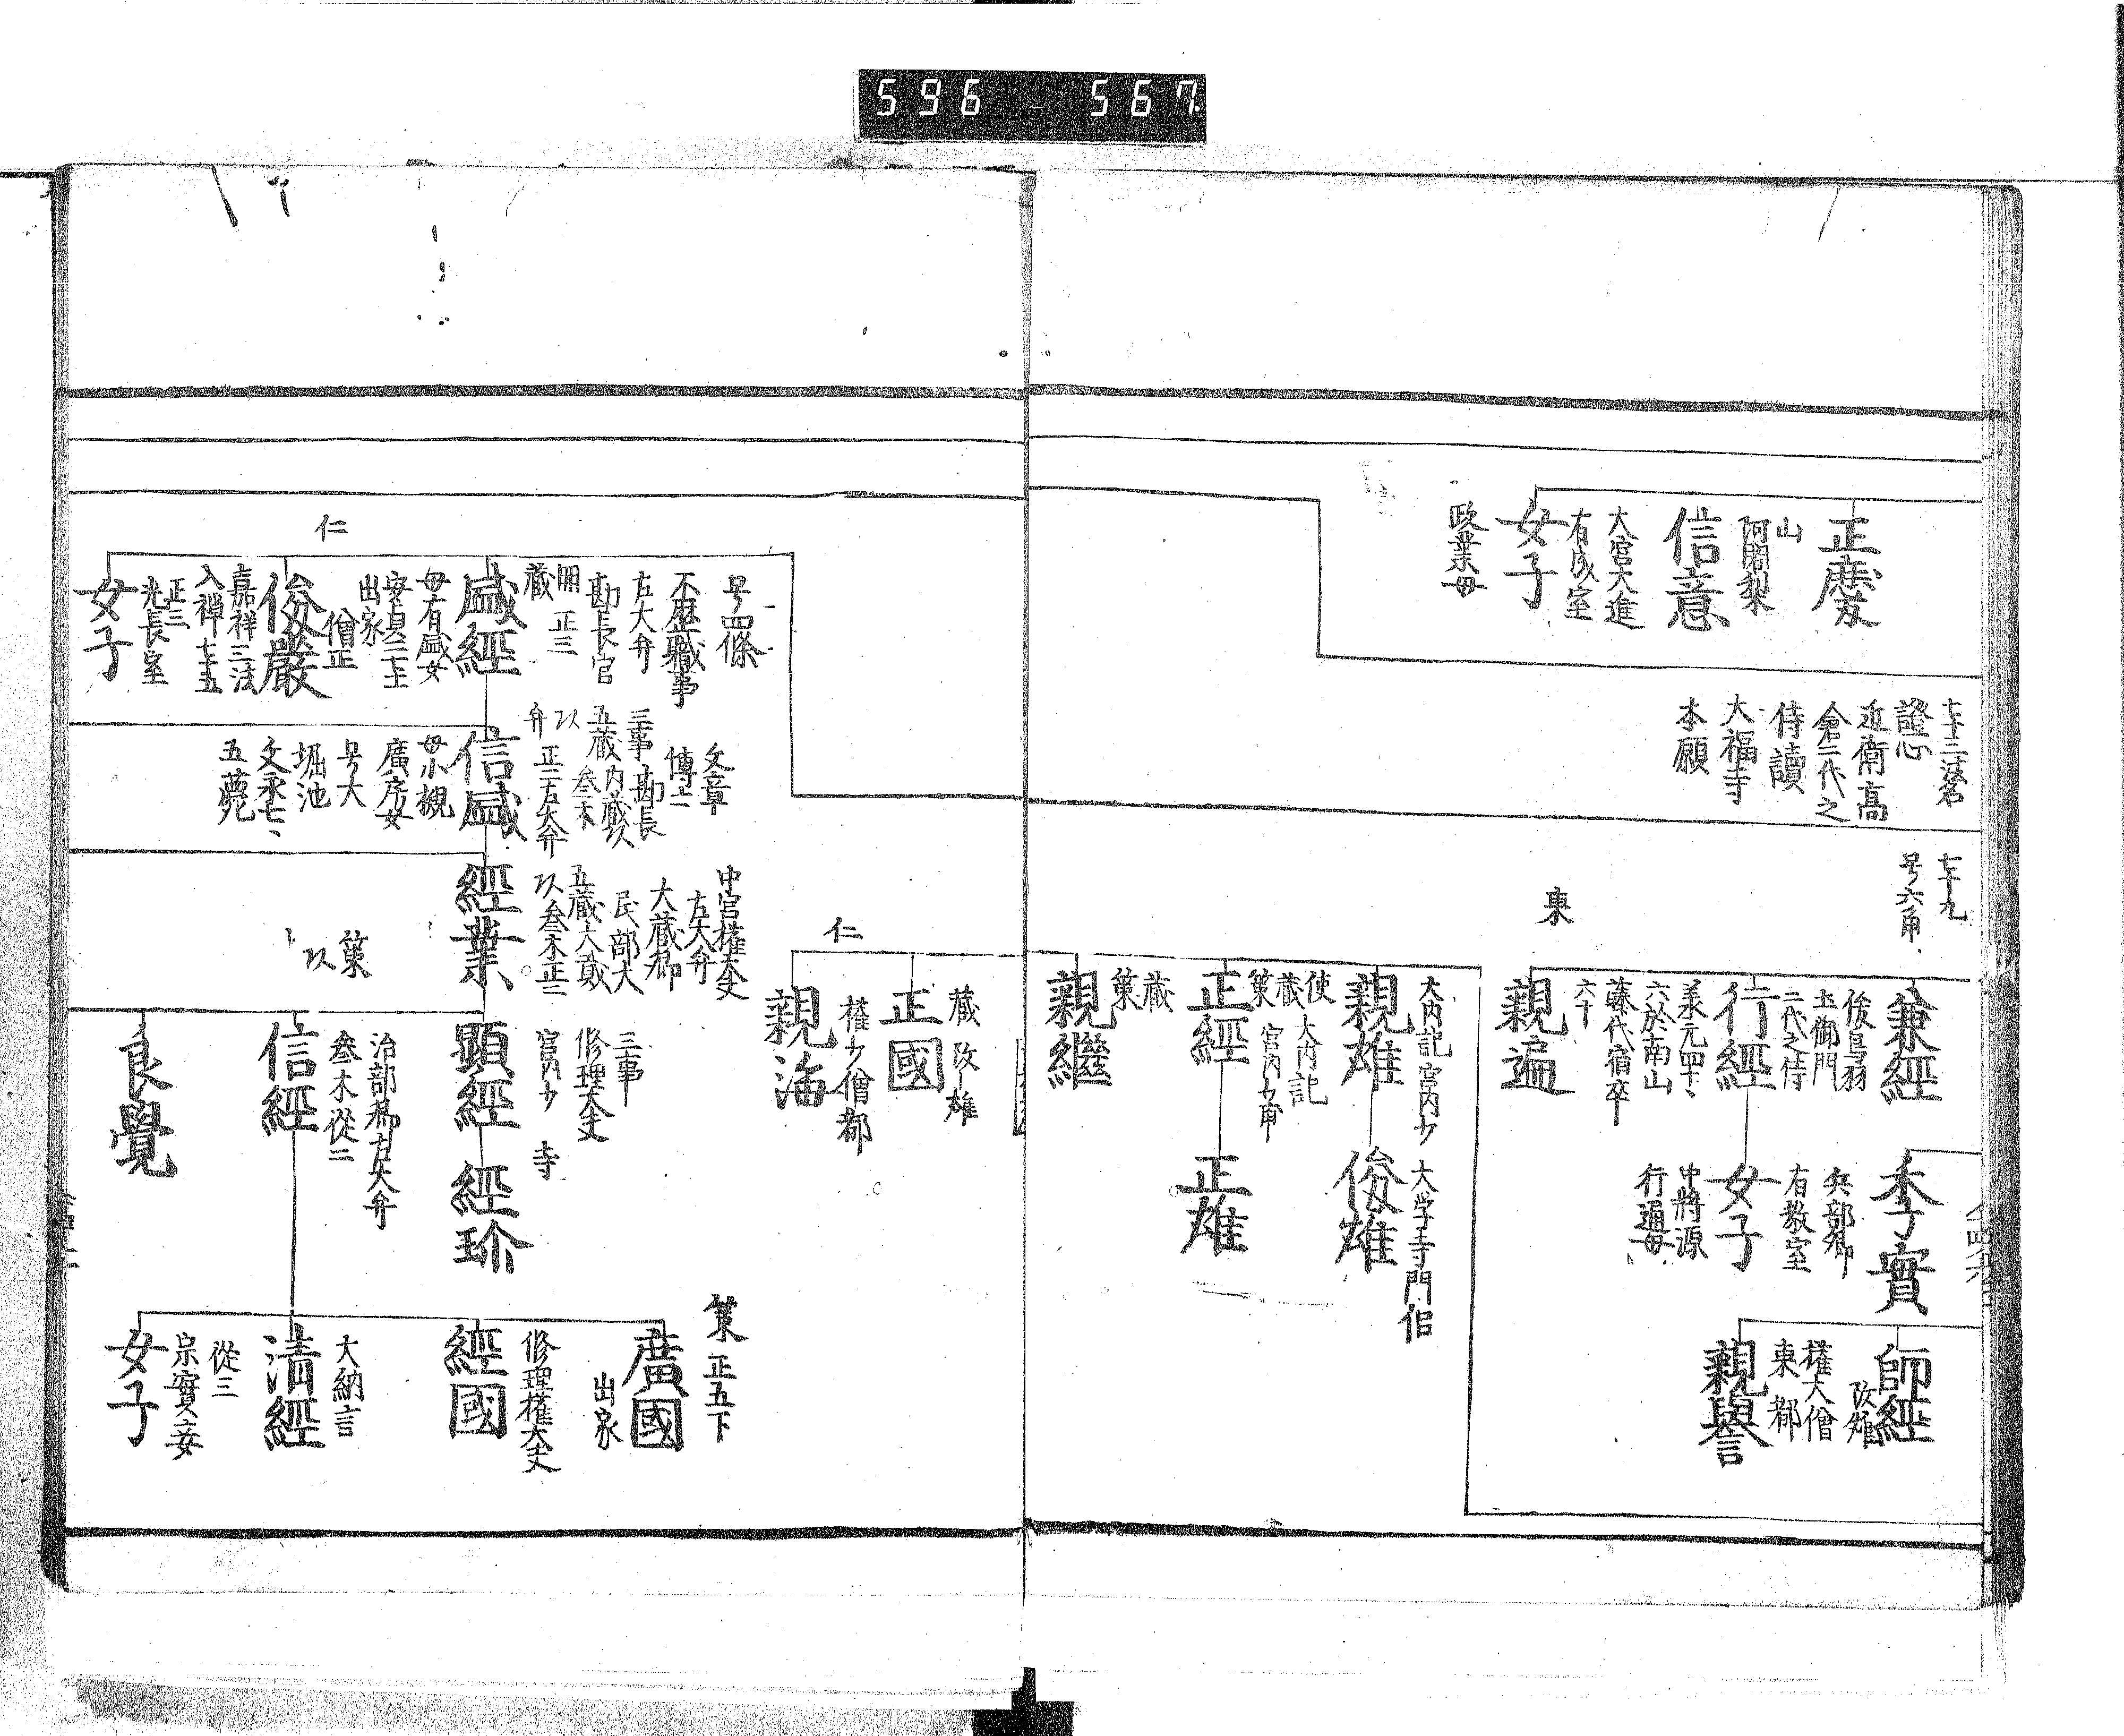 596 567
正慶
山
阿闍梨
信意
大宮大進
有成室
女子
政業母
七十三法名
證心
近衛高
倉二代之
侍讀
大福寺
本願
七十九
号六角
東
兼經
後鳥羽
土御門
二代之侍
行經
承元四十、
六於南山
藤代宿卒
六十
親遍
季實
兵部卿
有教室
女子
中將源
行通母
師經
改雅
權大僧
東 都
親譽
大内記 宮内少
親雄
大学寺門佀
俊雄
使
蔵 大内記
策 宮内少甫
正經
正雄
蔵
策
親繼
仁
蔵 改雄
正國
權少僧都
親海
仁
号四條
不歴職事
右大弁
勘長官
開 正三
蔵
盛經
母有盛女
安貞二七
出家
僧正
俊嚴
嘉祥三法
入禅七十五
正三
光長室
女子
文章
博士
三事 勘長
五蔵 内蔵以
以 叄木
弁 正二右大弁
信盛
母小槻
廣房女
号大
堀池
文永七、
五薨
中宮權大夫
右大弁
大蔵卿
民部大
五蔵大貳
以叄木正二
經業
策
以
三事
修理大夫
宮内少 寺
顯經
經玠
治部卿右大弁
叄木從二
信經
良覺
策 正五下
廣國
出家
修理權大夫
經國
大納言
清經
從三
宗實妾
女子